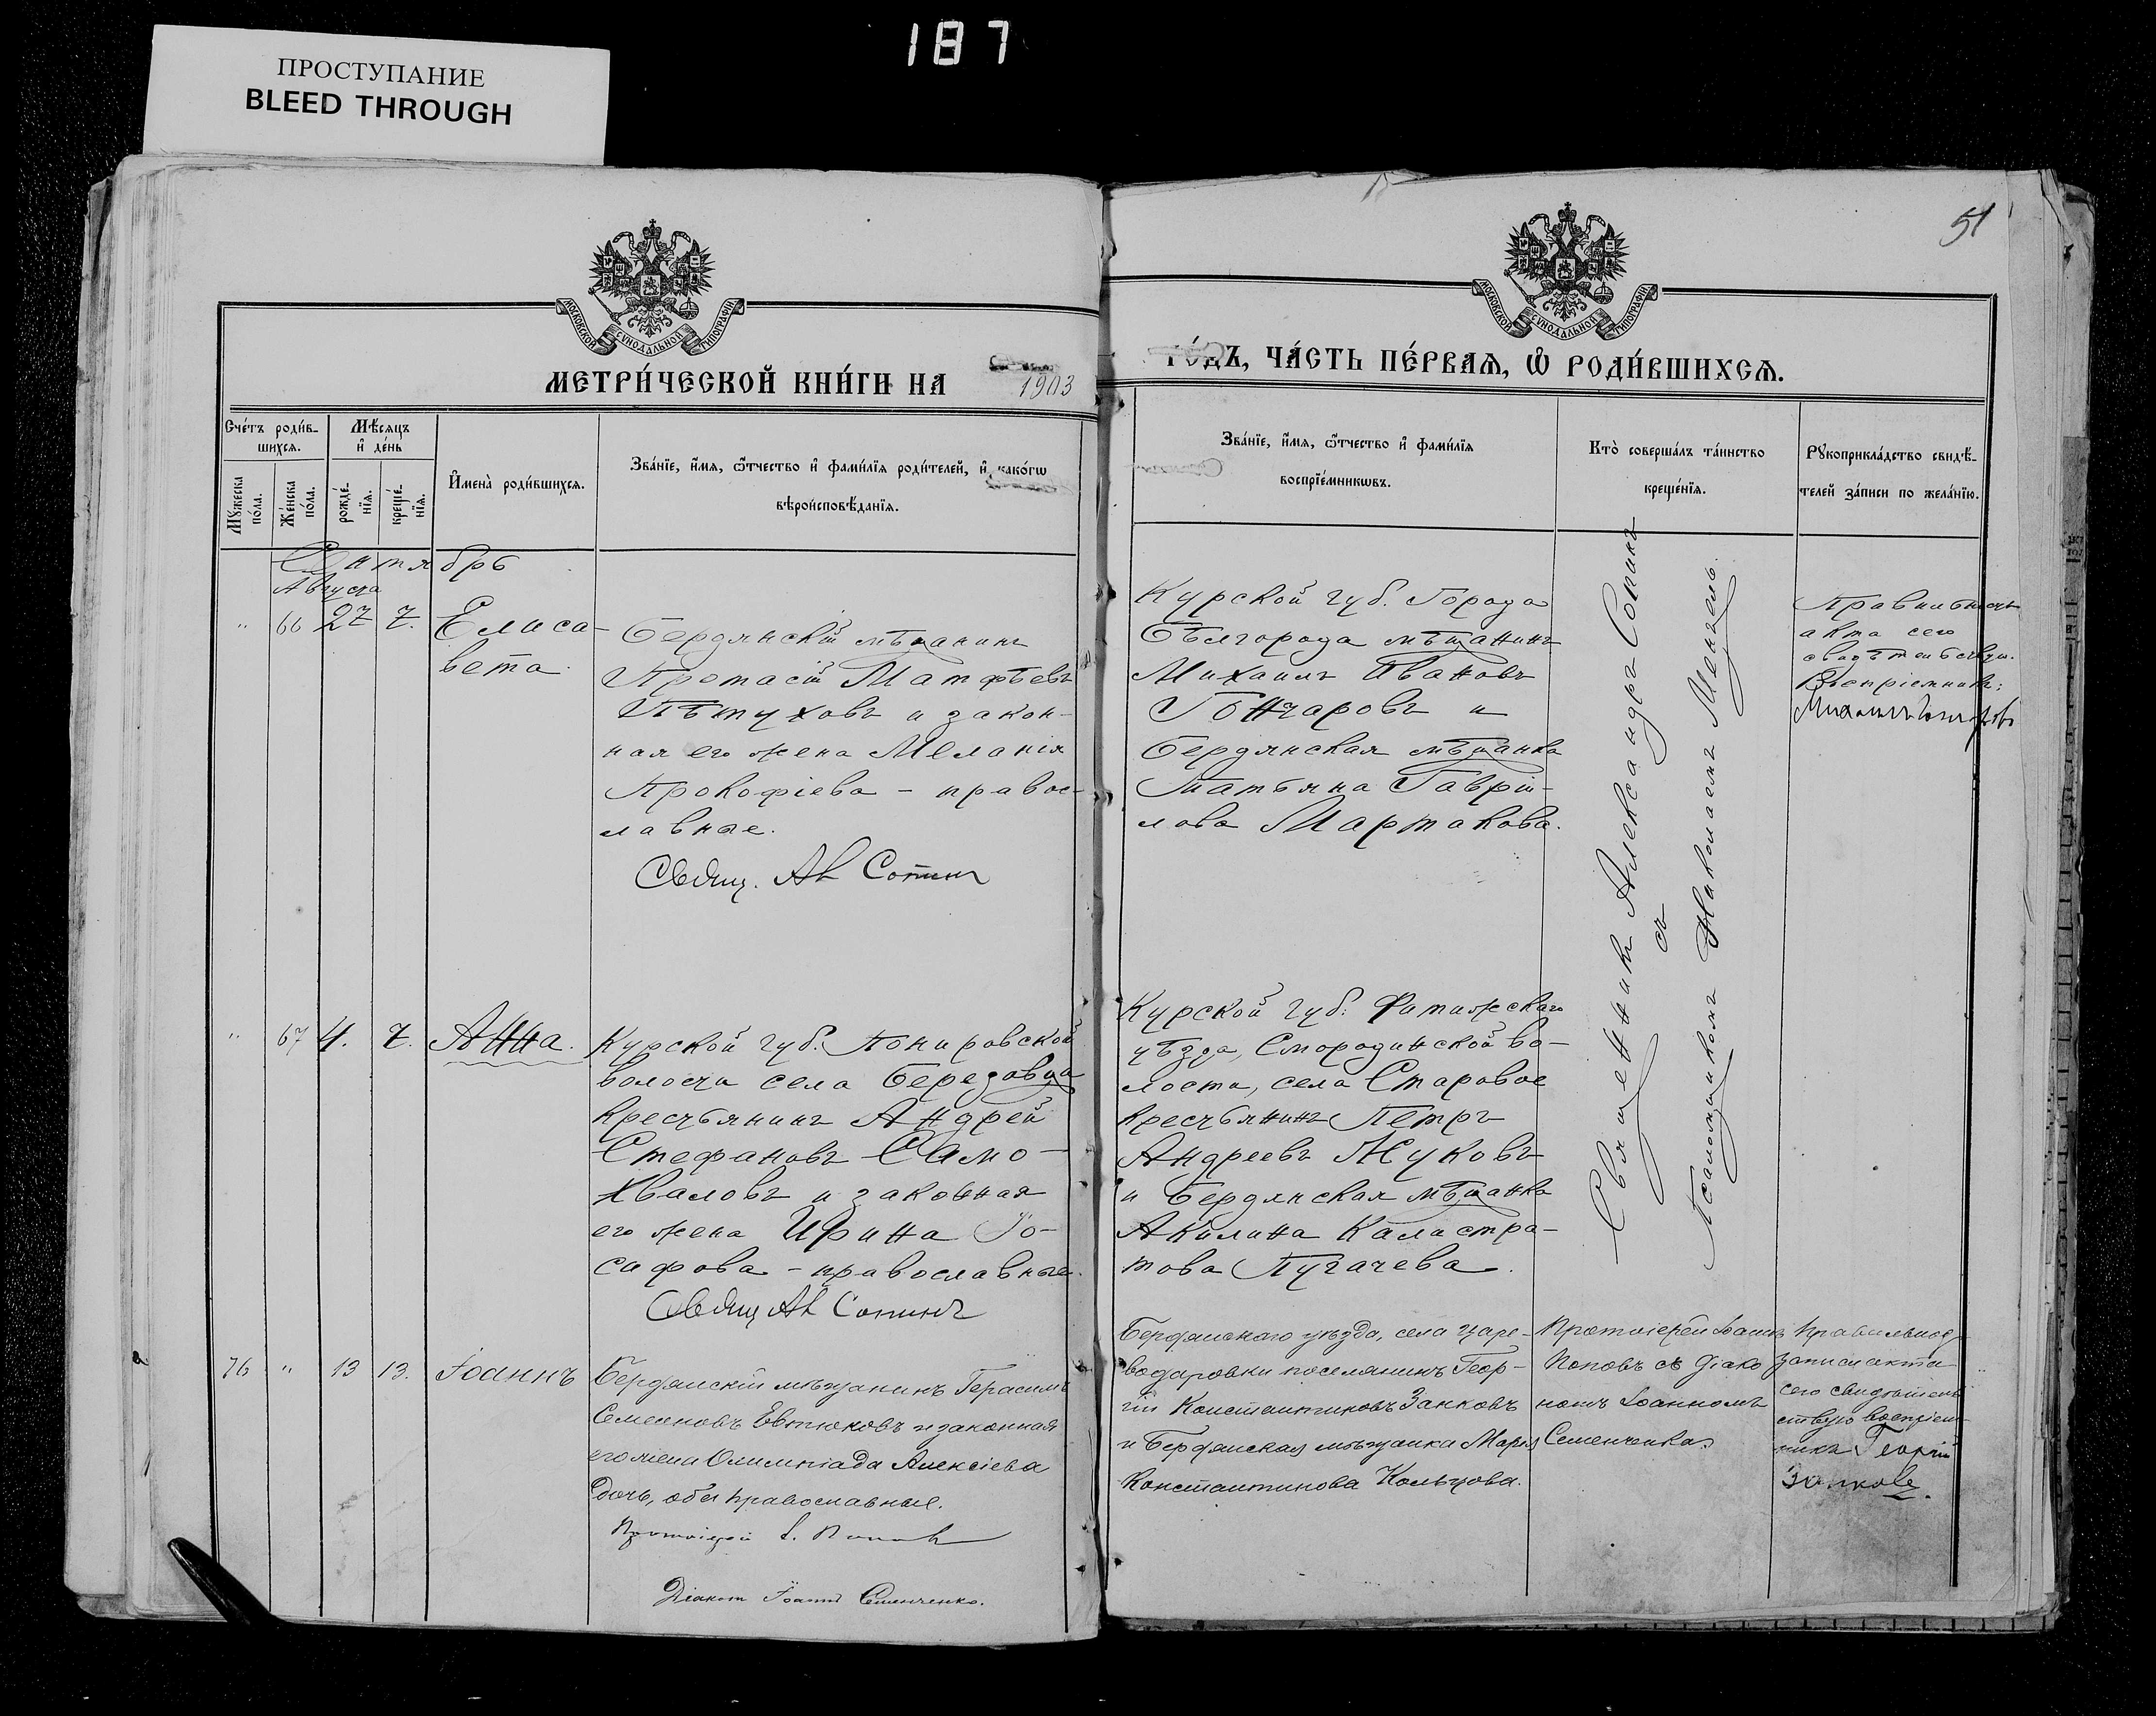 187
ПРОСТУПАНИЕ
BLEED THROUGH
51
МОСКОВСКОЙ СѴНОДАЛЬНОЙ ТИПОГРАФІИ
МОСКОВСКОЙ СѴНОДАЛЬНОЙ ТИПОГРАФІИ
МЕТРИ́ЧЕСКОЙ КНИ́ГИ НА 1903
ГО́ДЪ, ЧА́СТЬ ПЕ́РВАѦ, Ѡ҆ РОДИ́ВШИХСѦ.
Сче́тъ роди́в-
шихсѧ.
Мꙋжеска по́ла.
Же́нска по́ла.
Мѣ́сѧцъ
и҆ де́нь
рожде́-
нїѧ.
креще́-
нїѧ.
И҆мена̀ роди́вшихсѧ.
Зва́нїе, и҆́мѧ, ѻ҆́тчество и҆ фами́лїѧ роди́телей, и҆ како́гѡ
вѣроисповѣ́данїѧ.
Зва́нїе, и҆́мѧ, ѻ҆́тчество и҆ фами́лїѧ
воспрїе́мникѡвъ.
Кто̀ соверша́лъ та́инство
креще́нїѧ.
Рꙋкоприкла́дство свидѣ́-
телей за́писи по жела́нїю.
Сентябрь
Августа
" 66 27 7. Елиса-
вета
Бердянскій мѣщанинъ
Протасій Матфѣевъ
Пѣтуховъ и закон-
ная его жена Меланія
Прокофіева - правос-
лавные.
Свящ. Ал Сопинъ
Курской губ. Города
Бѣлгорода мѣщанинъ
Михаилъ Ивановъ
Гончаровъ и
Бердянская мѣщанка
Татьяна Гаврій-
лова Мартакова.
Священникъ Александръ Сопинъ
съ
Псаломщикомъ Николаемъ
акта сего
Воспріемникъ:
Михаилъ Гончаровъ
" 67 4. 7. Анна.
Курской губ. Поныровской
волости села Березовца
крестьянинъ Андрей
Стефановъ Само-
хваловъ и законная
его жена Ирина Іо-
сафова - православные.
Свящ Ал Сопинъ
Курской губ. Фатижскаго
уѣзда, Смородинской во-
лости, села Старовое
крестьянинъ Петръ
Андреевъ Жуковъ
и Бердянская мѣщанка
Акилина Калистра-
това Пугачева.
76 " 13 13. Іоаннъ
Бердянскій мѣщанинъ Герасимъ
Семеновъ Евтюковъ и законная
его жена Олимпіада Алексіева
дочь, оба православные.
Протоіерей І. Поповъ
Діаконъ Іоаннъ Семенченко.
Бердянскаго уѣзда, села Царе-
водаровки поселянинъ Геор-
гій Константиновъ Занковъ
и Бердянская мѣщанка Марія
Константинова Кольцова.
Протоіерей Іоаннъ
Поповъ съ діако
номъ Іоанномъ
Семенченко.
Правильность
записи акта
сего свидѣтель
ствую воспріем-
никъ Георгій
Занковъ.